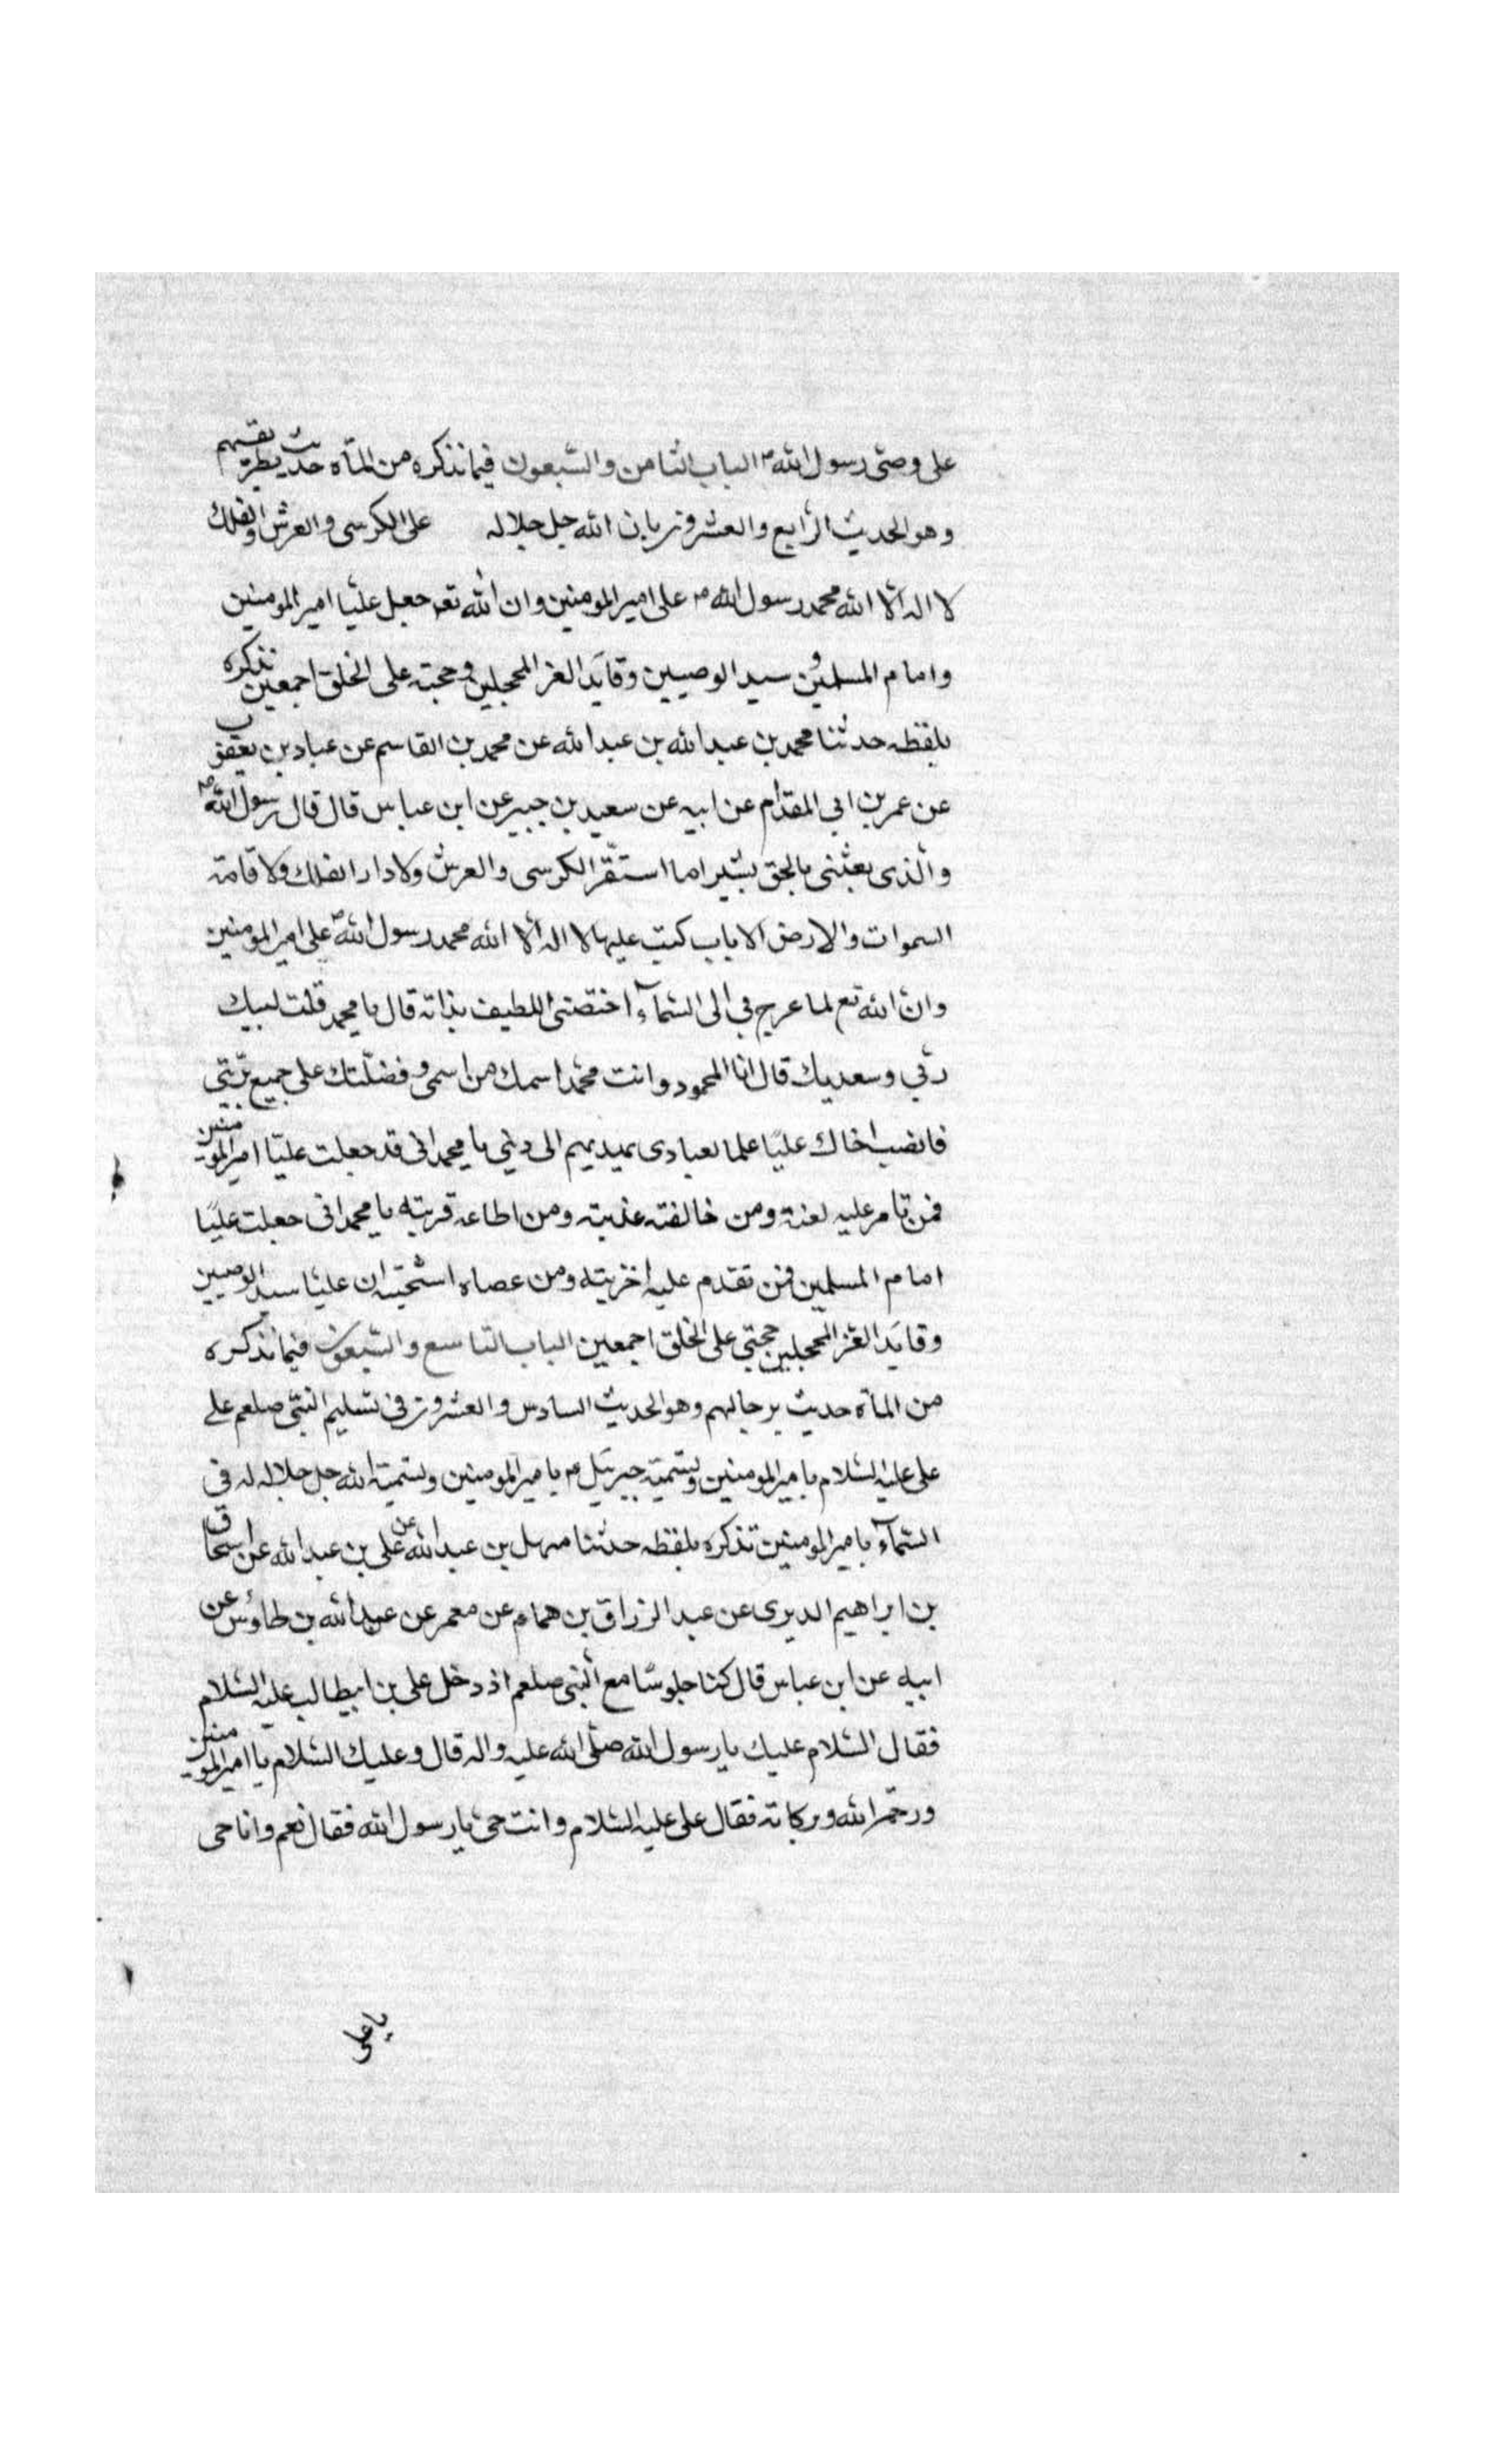 على وصي رسول الله ص الباب الثامن والسبعون فيما نذكره من المآة حديث بطريقهم
وهو الحديث الرابع والعشرون بان الله جل جلاله على الكرسي والعرش والفلك
لا اله الا الله محمد رسول الله ص على امير المومنين وان الله تعه جعل عليا امير المومنين
وامام المسلمين و سيد الوصيين وقايد الغر المحجلين وحجته على الخلق اجمعين نذكره
بلفظه حدثنا محمد بن عبد الله بن عبد الله عن محمد بن القاسم عن عباد بن يعقوب
عن عمر بن ابي المقدام عن ابيه عن سعيد بن جبير عن ابن عباس قال قال رسول الله ص
والذى بعثنى بالحق بشيرا ما استقر الكرسى والعرش ولا دار الفلك ولا قامة
السموات والارض الا باب كتب عليها لا اله الا الله محمد رسول الله ص على امير المومنين
وان الله تع لما عرج بي الى السمآء اختصني اللطيف بذاته قال يا محمد قلت لبيك
ربي وسعديك قال انا المحمود وانت محمد اسمك من اسمى وفضلتك على جميع بريتي
فانصب اخاك عليا علما لعبادى يهديهم الى ديني يا محمد اني قد جعلت عليا امير المومنين
فمن تامر عليه لعنة ومن خالفته عذبته ومن اطاعه قربته يا محمد انى جعلت عليا
امام المسلمين فمن تقدم عليه اخزيته ومن عصاه ان عليا سيد الوصيين
وقايد الغر المحجلين حجتي على الخلق اجمعين الباب التاسع والسبعون فيما نذكره
من المآة حديث برجالهم وهو الحديث السادس والعشرون في تسليم النبي صلعم على
على عليه السلام بامير المومنين وتسمية جبرئيل ع بامير المومنين وتسمية الله جل جلاله له في
السمآء بامير المومنين نذكره بلفظه حدثنا سهل بن عبد الله عن على بن عبد الله عن اسحاق
بن ابراهيم الديرى عن عبد الرزاق بن همام عن معمر عن عبد الله بن طاوس عن
ابيه عن ابن عباس قال كنا جلوسا مع النبي صلعم اذ دخل على بن ابيطالب عليه السلام
فقال السلام عليك يا رسول الله صلى الله عليه واله قال وعليك السلام يا امير المومنين
ورحمة الله وبركاته فقال على عليه السلام وانت حي يا رسول الله فقال نعم وانا حى
يا على